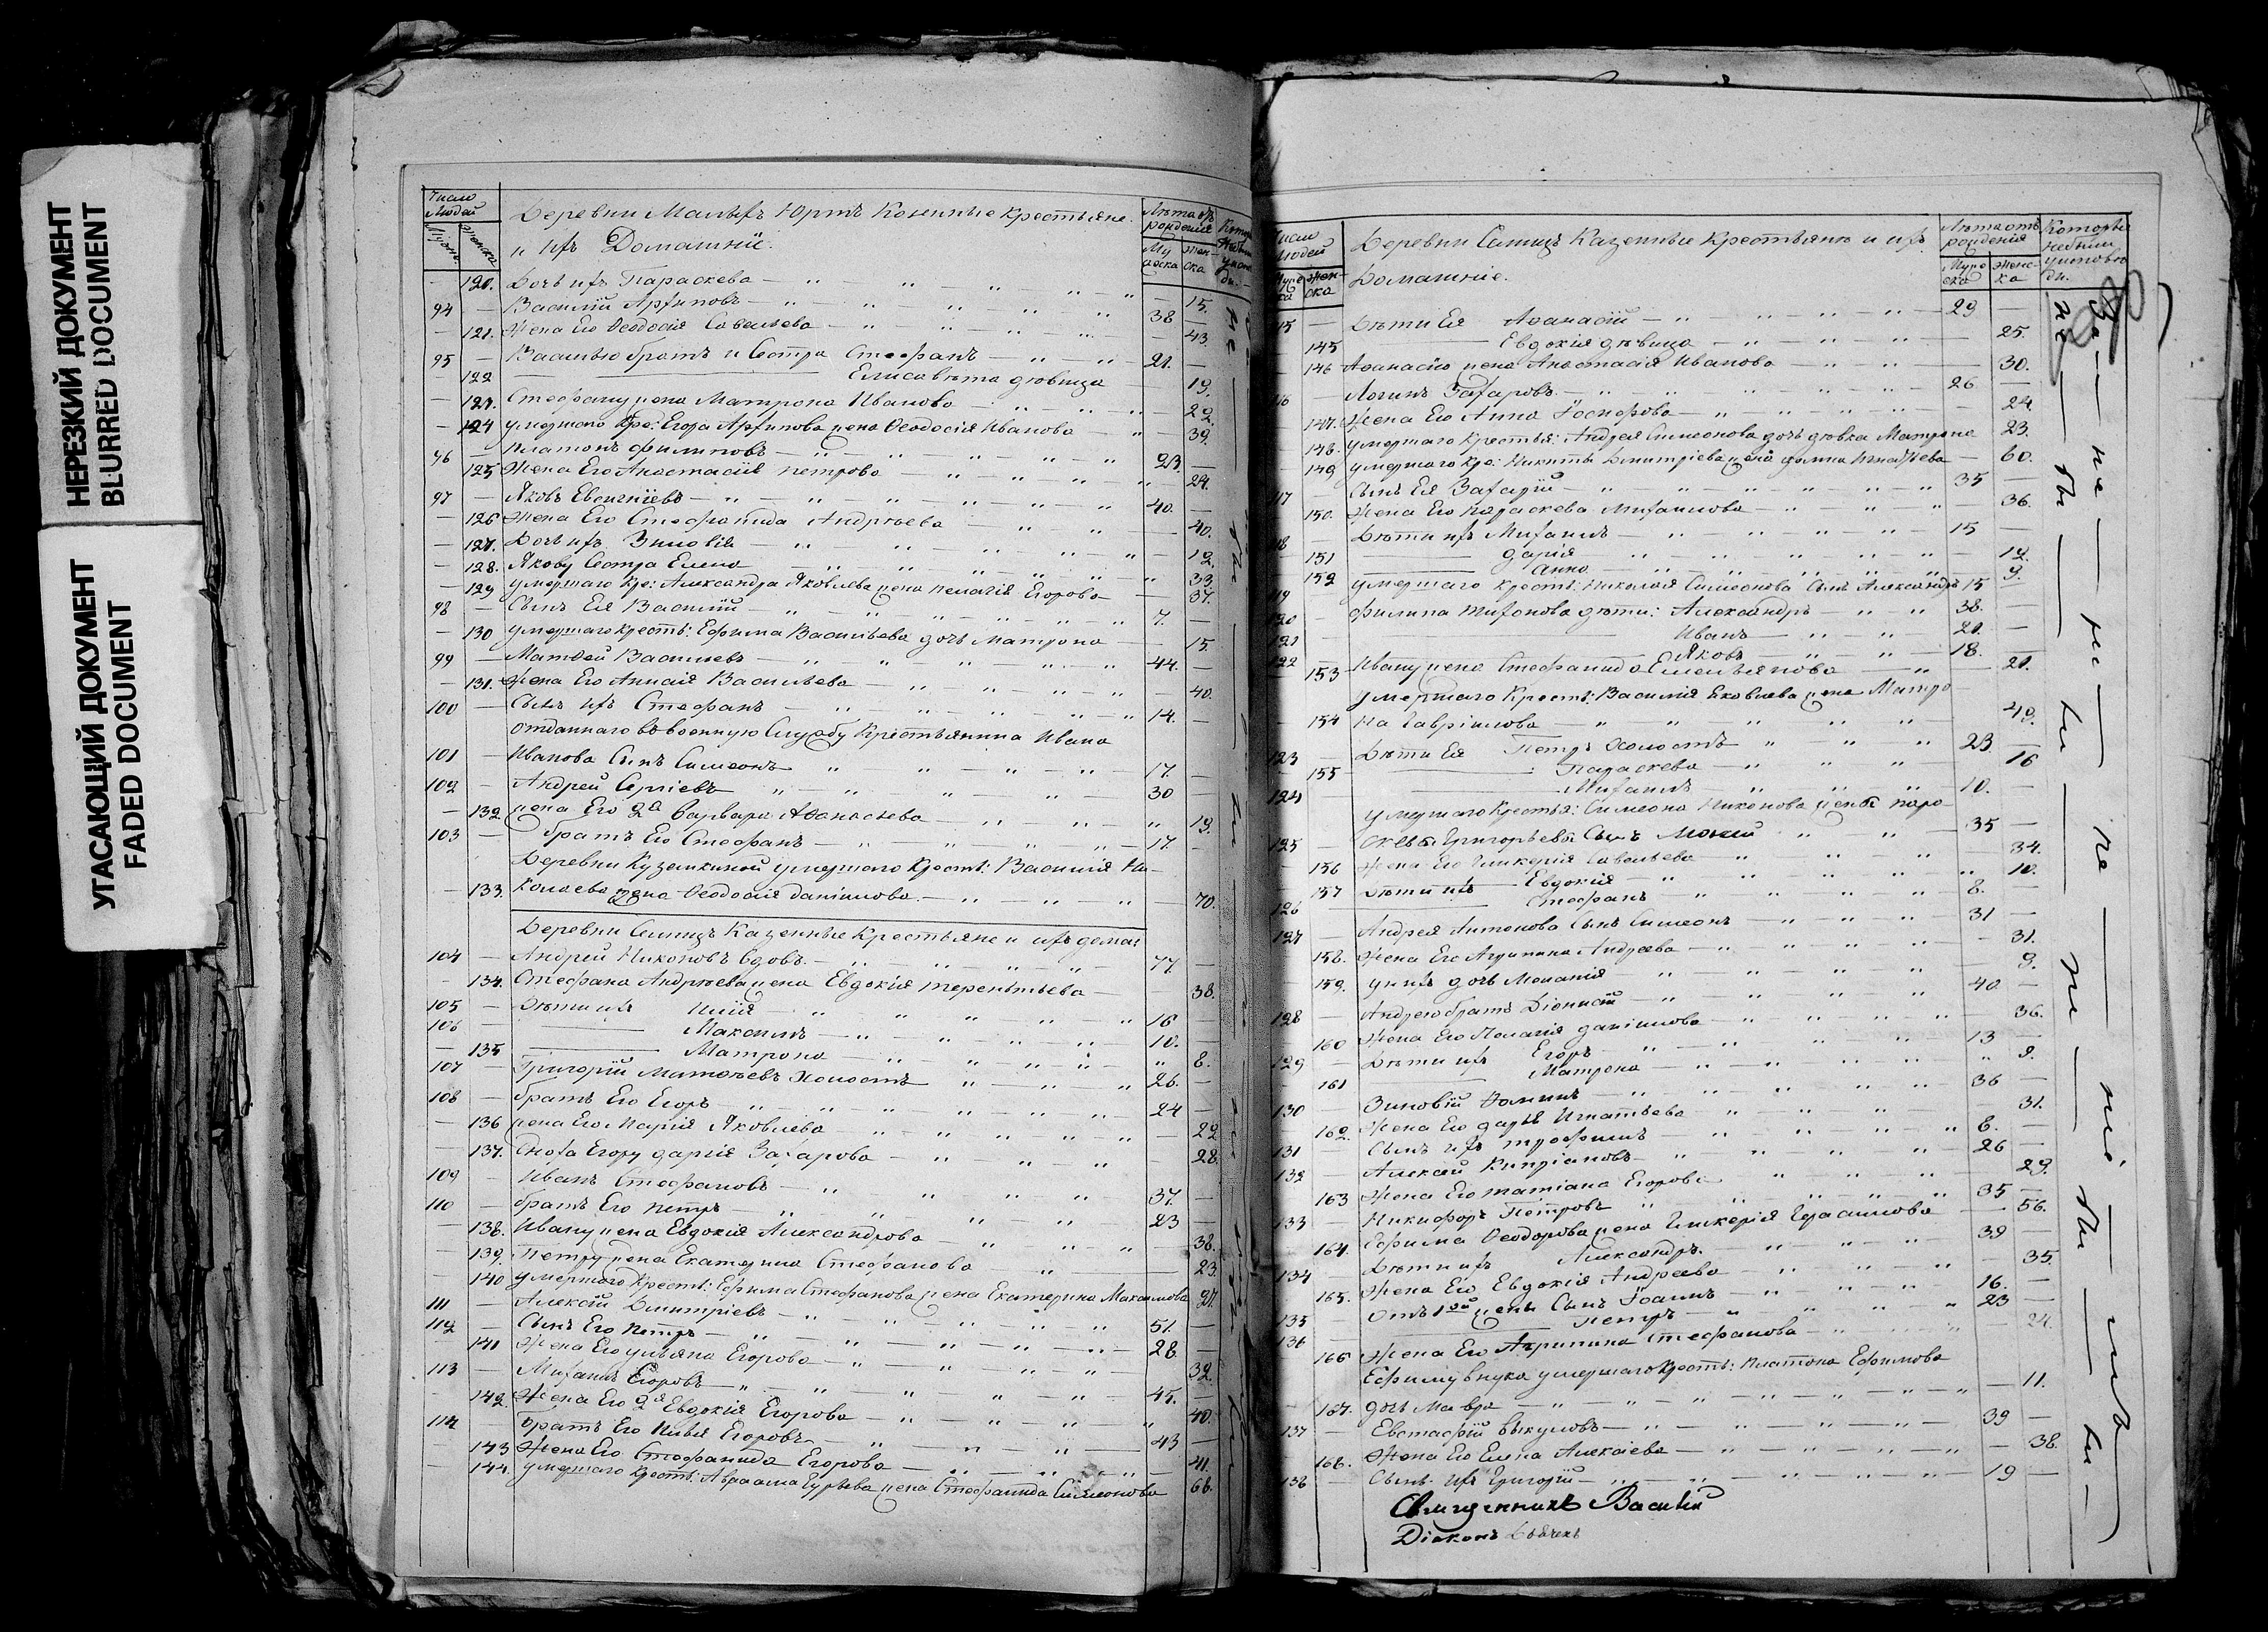 НЕРЕЗКИЙ ДОКУМЕНТ
BLURRED DOCUMENT
УГАСАЮЩИЙ ДОКУМЕНТ
FADED DOCUMENT
Число Людей
Деревни Малыхъ Юртъ Козенные крестьяне
и ихъ Домашнiи.
Лѣта отъ рожденiя
120. Дочь ихъ Параскева 15.
94 Василiй Архиповъ 38
121. Жена Его Ѳеодосiя Савельева 43.
95 Василью братъ и Сестра Стефанъ 21.
122 Елисавета дѣвица 19.
123. Стефану жена Матрона Иванова 22.
124 умершаго Кре: Егора Архипова жена Ѳеодосiя Иванова 39.
96 Платонъ Филиповъ 23.
125 Жена Его Анастасiя Петрова 24.
97 Яковъ Евсигнiевъ 40.
126 Жена Его Стефанида Андреева 40.
127. Дочь ихъ Зиновiя 12.
128. Якову Сестра Елена 33.
129 умершаго Кре: Александра Яковлева жена Пелагiя Егорова 37.
98 Сынъ Ея Василiй 7.
130 умершаго Кресть: Ефима Васильева дочь Матрона 15
99 Матвей Васильевъ 44.
131. Жена Его Аннаiя Васильева 40.
100 Сынъ ихъ Стефанъ 14.
отданнаго въ военную Службу Крестьянина Ивана
101 Иванова Сынъ Симеонъ 17.
102 Андрей Сергiевъ 30
132 жена Его 2я Варвара Аѳанасьева 19.
103 братъ Его Стефанъ 17.
Деревни Куземкиной умершаго Кресть: Василiя Ни-
133. колаева жена Ѳеодосiя Данiилова 70.
Деревни Селищъ Казенные Крестьяне и ихъ дома:
104 Андрей Никоновъ вдовъ 77.
134. Стефана Андреева жена Евдокiя Терентьева 38.
105 Дѣти ихъ Илiя 16
106 Максимъ 10.
135 Матрона 8.
107 Григорiй Матвѣевъ Холостъ 26.
108 братъ Его Егоръ 24
136 жена Его Марiя Яковлева 22
137. Сноха Егору Дарiя Захарова 28.
109 Иванъ Стефановъ 37.
110 братъ Его Петръ 23
138. Ивану жена Евдокiя Александрова 38.
139. Петру жена Екатерина Стефанова 23.
140 умершаго Кресть: Ефима Стефанова жена Екатерина Максимова 27.
111 Алексiй Дмитрiевъ 51.
112 Сынъ Его Петръ 28.
141 Жена Его Ульяна Егорова 32.
113 Михаилъ Егоровъ 45.
142 Жена Его 2я Евдокiя Егорова 40.
114 Братъ Его Илья Егоровъ 43
143 Жена Его Стефанида Егорова 41.
144. умершаго Кресть: Авраама Гурьева жена Стефанида Симеонова 66.
Число Людей
Деревни Селищъ Казенные Крестьяне и ихъ
Домашнiе.
Лѣта отъ рожденiя
Дѣти Ея Аѳанасiй 29
145 Евдокiя дѣвица 25.
146 Аѳанасiю жена Анастасiя Иванова 30.
Логинъ Захаровъ 26
147. Жена Его Анна Iосифова 24.
148. умершаго Кресть: Андрея Симеонова дочь дѣвка Матрона 23.
149 умершаго Кре: Никиты Дмитрiева жена Игнатьева 60.
Сынъ Ея Захарiй 35
150. Жена Его Параскева Михаилова 36.
Дѣти ихъ Михаилъ 15
151 Дарiя 12.
152 Анна 9.
умершаго Кресть: Николая Симеонова Сынъ Александръ 15
120 Филипа Тихонова дѣти: Александръ 38.
121 Иванъ 21.
122 Яковъ 18.
153 Ивану жена Стефанида Емельянова 21.
умершаго Кресть: Василiя Яковлева жена Матро-
154 на Гаврiилова 49.
123 Дѣти Ея Петръ Холостъ 23
155 Параскева 16
124 Михаилъ 10.
умершаго Кресть: Симеона Никонова жены Пара-
125 скевы Григорьевы Сынъ 35
156 Жена Его Гликерiя Савельева 34.
157 Дѣти ихъ Евдокiя 10.
126 Стефанъ 8.
127 Андрея Антонова Сынъ Симеонъ 31
158. Жена Его Агрипина Андреева 31.
159. у нихъ дочь Меланiя 9.
128 Андрею братъ Дiонисiй 40
160 Жена Его Пелагiя Данiилова 36.
129 Дѣти ихъ Егоръ 13
161 Матрона 9.
130 Зиновiй Ѳоминъ 36
162. Жена Его Дарья Игнатьева 31.
131 Сынъ ихъ Трофимъ 6.
132 Алексiй Кипрiановъ 26
163 Жена Его Татiана Егорова 29.
133 Никифоръ Петровъ 35
164. Ефима Ѳеодорова жена Гликерiя Герасимова 56.
134 Дѣти ихъ Александръ 39
165. Жена Его Евдокiя Андреева 35.
135 Отъ 1ой жены Сынъ Iоаннъ 16.
136 Петръ 23
166 Жена Его Агрипина Стефанова 24.
Ефиму внука умершаго Кресть: Платона Ефимова
167. дочь Мавра 11.
137 Евстафiй Викуловъ 39
168. Жена Его Елена Алексiева 38.
138 Сынъ ихъ Григорiй 19
Священникъ Василiй
Дiаконъ